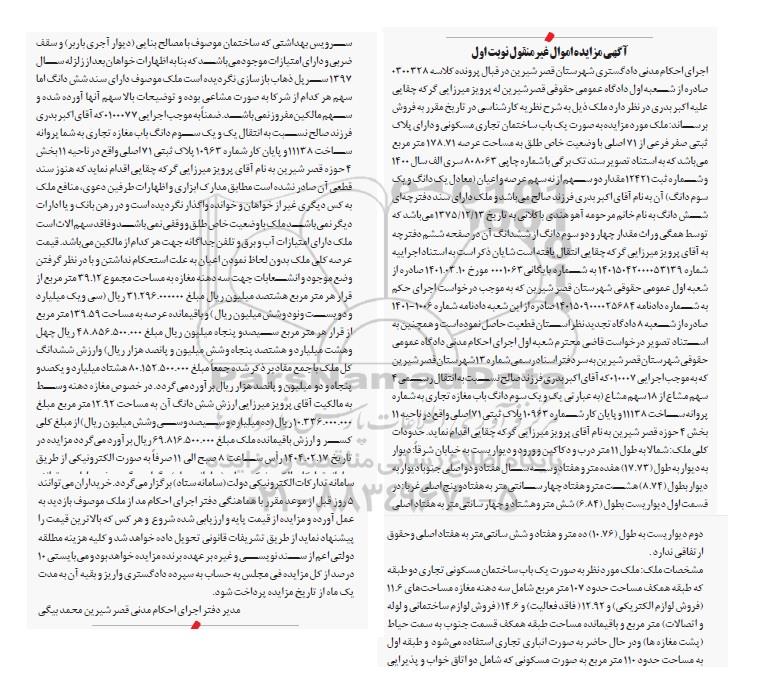 آگهی مزایده اموال غیر منقول نوبت اول
اجرای احکام مدنی دادگستری شهرستان قصر شیرین در قبال پرونده کلاسه ۰۳۰۰۳۲۸
صادره از شعبه اول دادگاه عمومی حقوقی قصر شیرین له پرویز میرزایی گرکه چقایی
علیه اکبر بدری در نظر دارد ملک ذیل به شرح نظریه کارشناسی در تاریخ مقرر به فروش
برساند: ملک مورد مزایده به صورت یک باب ساختمان تجاری مسکونی و دارای پلاک
ثبتی صفر فرعی از ۷۱ اصلی با وضعیت خاص طلق به مساحت عرصه ۱۷۸.۷۱ متر مربع
می‌باشد که به استناد تصویر سند تک برگی با شماره چاپی ۸۰۸۰۶۳ سری الف سال ۱۴۰۰
و شماره ثبت ۱۲۴۲۱ مقدار دو سهم از نه سهم عرصه و اعیان (معادل یک دانگ و یک
سوم دانگ) آن به نام آقای اکبر بدری فرزند صالح می‌باشد و ملک دارای سند دفترچه‌ای
شش دانگ به نام خانم مرحومه آهو هندی باکلانی به تاریخ ۱۳۷۵/۱۲/۱۳ می‌باشد که
توسط همگی وراث مقدار چهار و دو سوم دانگ از ششدانگ آن در صفحه ششم دفترچه
به آقای پرویز میرزایی گرکه چقایی انتقال یافته است شایان ذکر است به استناد اجراییه
شماره ۱۴۰۱۵۰۴۲۰۰۰۰۵۳۱۳۹ به شماره بایگانی ۰۰۰۱۰۶۳ مورخ ۱۴۰۱.۰۳.۱۰ صادره از
شعبه اول عمومی حقوقی شهرستان قصر شیرین که به موجب درخواست اجرای حکم
به شماره دادنامه ۱۴۰۱۵۰۹۰۰۰۰۲۵۶۸۴ صادره از این شعبه دادنامه شماره ۱۰۰۶-۱۴۰۱
صادره از شعبه ۸ دادگاه تجدید نظر استان قطعیت حاصل نموده است و همچنین به
استناد تصویر درخواست قاضی محترم شعبه اول اجرای احکام مدنی دادگاه عمومی
حقوقی شهرستان قصر شیرین به سر دفتر اسناد رسمی شماره ۱۳ شهرستان قصر شیرین
که به موجب اجرایی ۰۱۰۰۰۷ که آقای اکبر بدری فرزند صالح نسبت به انتقال رسمی ۴
سهم مشاع از ۱۸ سهم مشاع (به عبارتی یک و یک سوم دانگ باب مغازه تجاری به شماره
پروانه ساخت ۱۱۱۳۸ و پایان کار شماره ۱۰۹۶۳ پلاک ثبتی ۷۱ اصلی واقع در ناحیه ۱۱
بخش ۴ حوزه قصر شیرین به نام آقای پرویز میرزایی گرکه چقایی اقدام نماید. حدودات
کلی ملک: شمالا به طول ۱۱ متر درب و دکاکین و ورود و دیوار یست به خیابان شرقاً: دیوار
به دیوار به طول (۱۷.۷۳) هفده متر و هفتاد و سه سانتی‌متر و هفتاد و دو اصلی جنوبا دیوار به
دیوار بطول (۸.۷۴) هشت متر و هفتاد چهار سانتی متر به هفتاد و پنج اصلی غربا: در
قسمت اول دیوار یست بطول (۶.۸۴) شش متر و هشتاد و چهار سانتی متر به هفتاد اصلی
دوم دیوار یست به طول (۱۰.۷۶) ده متر و هفتاد و شش سانتی متر به هفتاد اصلی و حقوق
ارتفاقی ندارد.
مشخصات ملک: ملک مورد نظر به صورت یک باب ساختمان مسکونی تجاری دو طبقه
که طبقه همکف مساحت حدود ۱۰۷ متر مربع شامل سه دهنه مغازه مساحت‌های ۱۱.۶
(فروش لوازم الکتریکی) و ۱۲.۹۲ (فاقد فعالیت) و ۱۴.۶ (فروش لوازم ساختمانی و لوله
و اتصالات) متر مربع و باقیمانده مساحت طبقه همکف قسمت جنوب به سمت حیاط
(پشت مغازه ها) و در حال حاضر به صورت انباری تجاری استفاده می‌شود و طبقه اول
به مساحت حدود ۱۱۰ متر مربع به صورت مسکونی که شامل دو اتاق خواب و پذیرایی
سرویس بهداشتی که ساختمان موصوف با مصالح بنایی (دیوار آجری باربر) و سقف
ضربی و دارای امتیازات موجود می‌باشد که بنا به اظهارات خواهان بعد از زلزله سال
۱۳۹۷ سرپل ذهاب بازسازی نگردیده است ملک موصوف دارای سند شش دانگ اما
سهم هر کدام از شرکا به صورت مشاعی بوده و توضیحات بالا سهم آنها آورده شده و
سهم مالکین مفروز نمی‌باشد. ضمناً به موجب اجرایی ۰۱۰۰۰۷۷ که آقای اکبر بدری
فرزند صالح نسبت به انتقال یک و یک سوم دانگ باب مغازه تجاری به شما پروانه
ساخت ۱۱۱۳۸ و پایان کار شماره ۱۰۹۶۳ پلاک ثبتی ۷۱ اصلی واقع در ناحیه ۱۱ بخش
۴ حوزه قصر شیرین به نام آقای پرویز میرزایی گرکه چقایی اقدام نماید که هنوز سند
قطعی آن صادر نشده است مطابق مدارک ابرازی و اظهارات طرفین دعوی، منافع ملک
به کس دیگری غیر از خواهان و خوانده واگذار نگردیده است و در رهن بانک و یا ادارات
دیگر نمی‌باشد ملک با وضعیت خاص طلق و وقفی نمی‌باشد و فاقد سهم الاث است
ملک دارای امتیازات آب و برق و تلفن جداگانه جهت هر کدام از مالکین می‌باشد. قیمت
عرصه کلی ملک بدون لحاظ نمودن اعیان به علت استحکام نداشتن و با در نظر گرفتن
وضع موجود و انشعابات جهت سه دهنه مغازه به مساحت مجموع ۳۹.۱۲ متر مربع از
قرار هر متر مربع هشتصد میلیون ریال مبلغ ۳۱.۲۹۶.۰۰۰۰۰۰ ریال (سی و یک میلیارد
و دویست و نود و شش میلیون ریال) و باقیمانده عرصه به مساحت ۱۳۹.۵۹ متر مربع
از قرار هر متر مربع سیصد و پنجاه میلیون ریال مبلغ ۴۸.۸۵۶.۵۰۰.۰۰۰ ریال چهل
وهشت میلیارد و هشتصد پنجاه و شش میلیون و پانصد هزار ریال) و ارزش ششدانگ
کل ملک با جمع مقادیر ذکر شده جمعاً مبلغ ۸۰.۱۵۲.۵۰۰.۰۰۰ هشتاد میلیارد و یکصدو
پنجاه و دو میلیون و پانصد هزار ریال برآورد می گردد. در خصوص مغازه دهنه وسط
به مالکیت آقای پرویز میرزایی ارزش شش دانگ آن به مساحت ۱۲.۹۲ متر مربع مبلغ
۱۰.۳۳۶.۰۰۰.۰۰۰ ریال (ده میلیارد و سیصد و سی وشش میلیون ریال) از مبلغ کلی
کسر و ارزش باقیمانده ملک مبلغ ۶۹.۸۱۶.۵۰۰.۰۰۰ ریال برآورد می گردد مزایده در
تاریخ ۱۴۰۴.۰۲.۱۷ رأس ساعت ۸ صبح الی ۱۱ صرفاً به صورت الکترونیکی از طریق
سامانه تدارکات الکترونیکی دولت (سامانه ستاد) برگزار می گردد. خریداران می توانند
۵ روز قبل از موعد مقرر با هماهنگی دفتر اجرای احکام مد از ملک موصوف بازدید به
عمل آورده و مزایده از قیمت پایه و ارزیابی شده شروع و هر کس که بالاترین قیمت را
پیشنهاد نماید از طریق تشریفات قانونی تحویل داده خواهد شد و کلیه هزینه مطلقه
دولتی اعم از سند نویسی و غیره بر عهده برنده مزایده خواهد بود و می بایستی ۱۰
درصد از کل مزایده فی مجلس به حساب به سپرده دادگستری واریز و بقیه آن به مدت
یک ماه از تاریخ مزایده پرداخت شود.
مدیر دفتر اجرای احکام مدنی قصر شیرین محمد بیگی